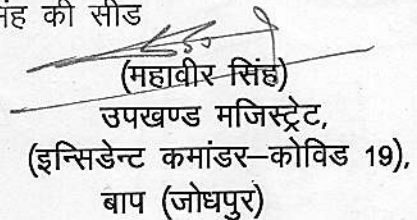 की सीड
(महावीर सिंह)
उपखण्ड मजिस्ट्रेट,
(इन्सिडेन्ट कमांडर–कोविड 19),
बाप (जोधपुर)